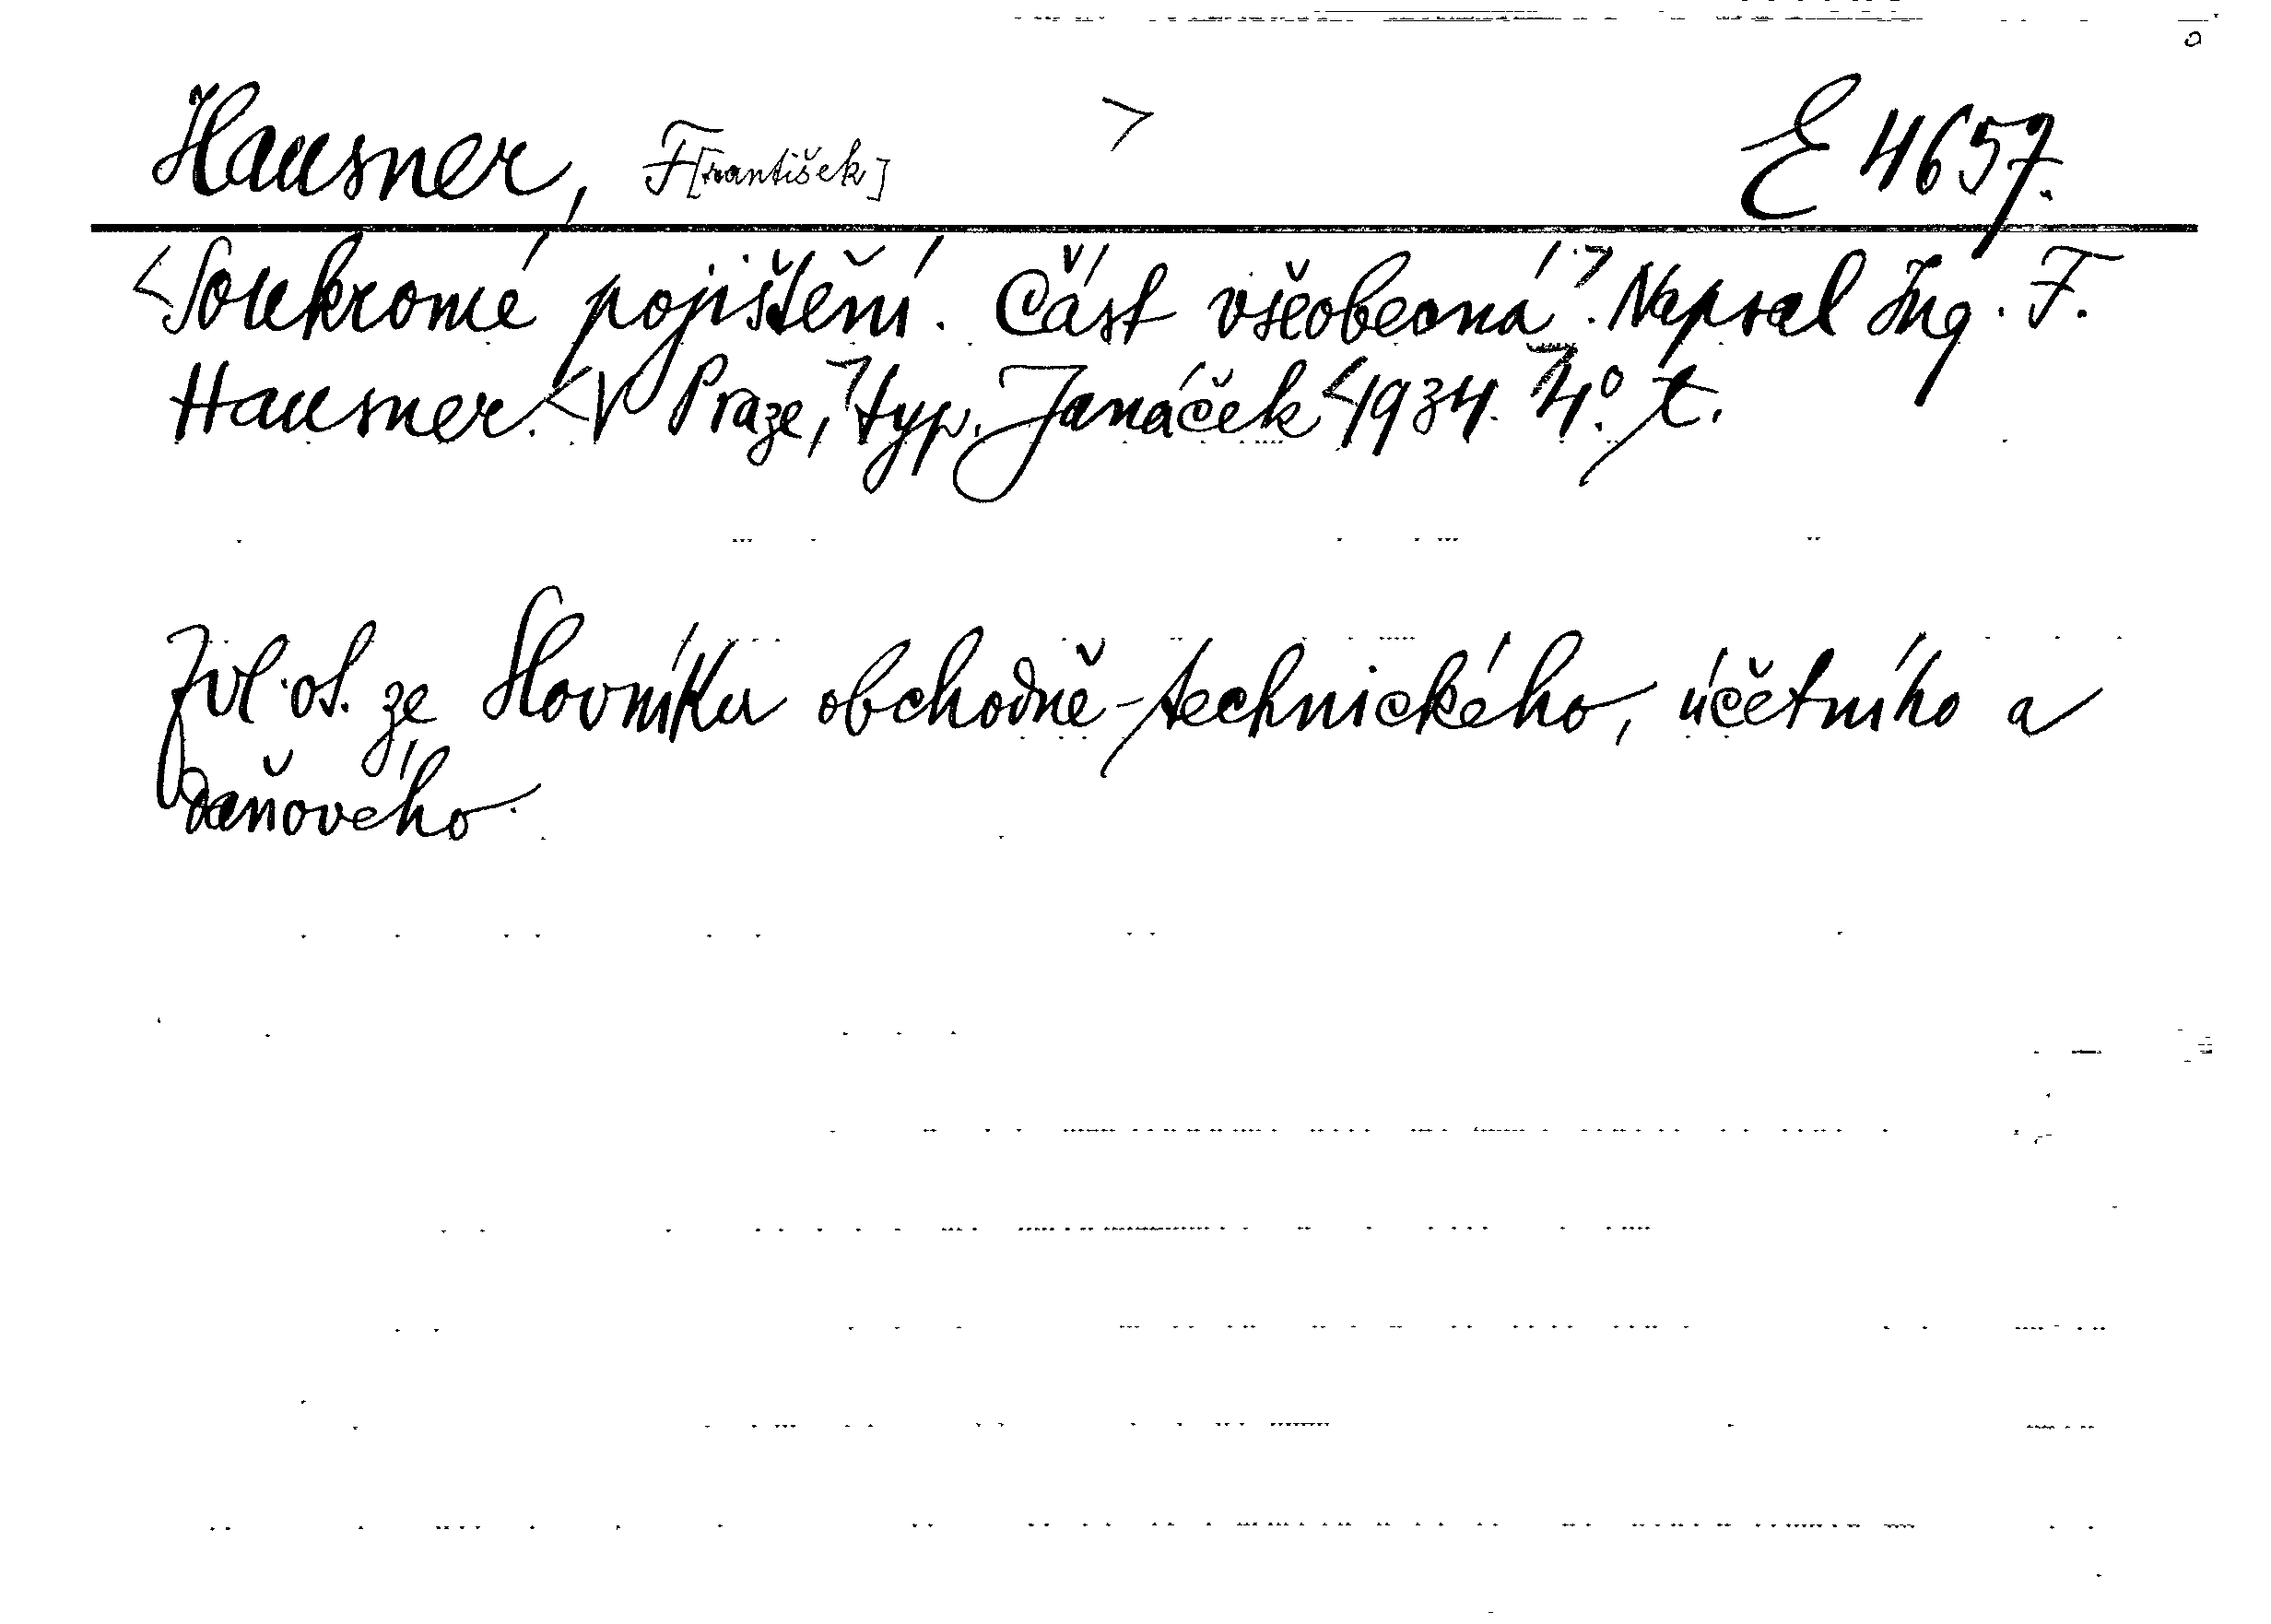 Hausner, F[rantišek] > E 4657.
<Soukromé pojištění. Část všeobecná>. Napsal Ing. F.
Hausner. <V Praze,> typ. Janáček <1934.> 4°. t.
Zvl. ot. ze Slovníku obchodně-technického, účetního a
daňového.